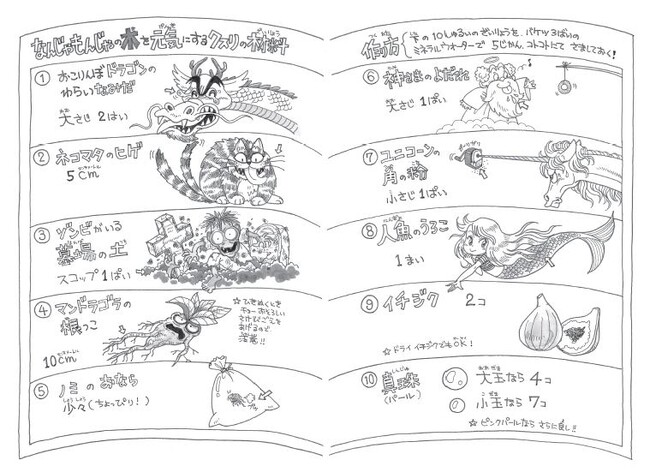 なんじゃもんじゃの木を元気にするクスリの材料
① おこりんぼドラゴンの
わらいなみだ
大さじ 2はい
② ネコマタのヒゲ
5cm
③ ゾンビがいる
墓場の土
スコップ1ぱい
④ マンドラゴラの
根っこ
10cm
☆ひきぬくとき
注意!!
⑤ ノミのおなら
少々(ちょっぴり!)
作り方
下の10しゅるいのざいりょうを、バケツ3ばいの
ミネラルウオーターで5じかん、コトコトにてさましておく!
⑥ 神さまのよだれ
大さじ1ぱい
⑦ ユニコーンの
角の粉
小さじ1ぱい
⑧ 人魚のうろこ
1まい
⑨ イチジク 2コ
☆ドライイチジクでもOK!
⑩ 真珠
(パール)
大玉なら4コ
小玉なら7コ
☆ピンクパールならさらに良し!!